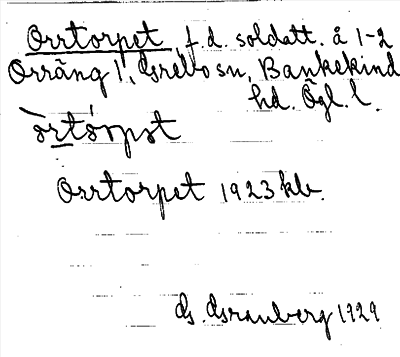 Orrtorpet, f.d. soldatt. å 1-2
Orräng 1, Grebo sn, Bankekind
hd. Ögl. l.
òrtórpət
Orrtorpet 1923 kb.
G. Granberg 1929